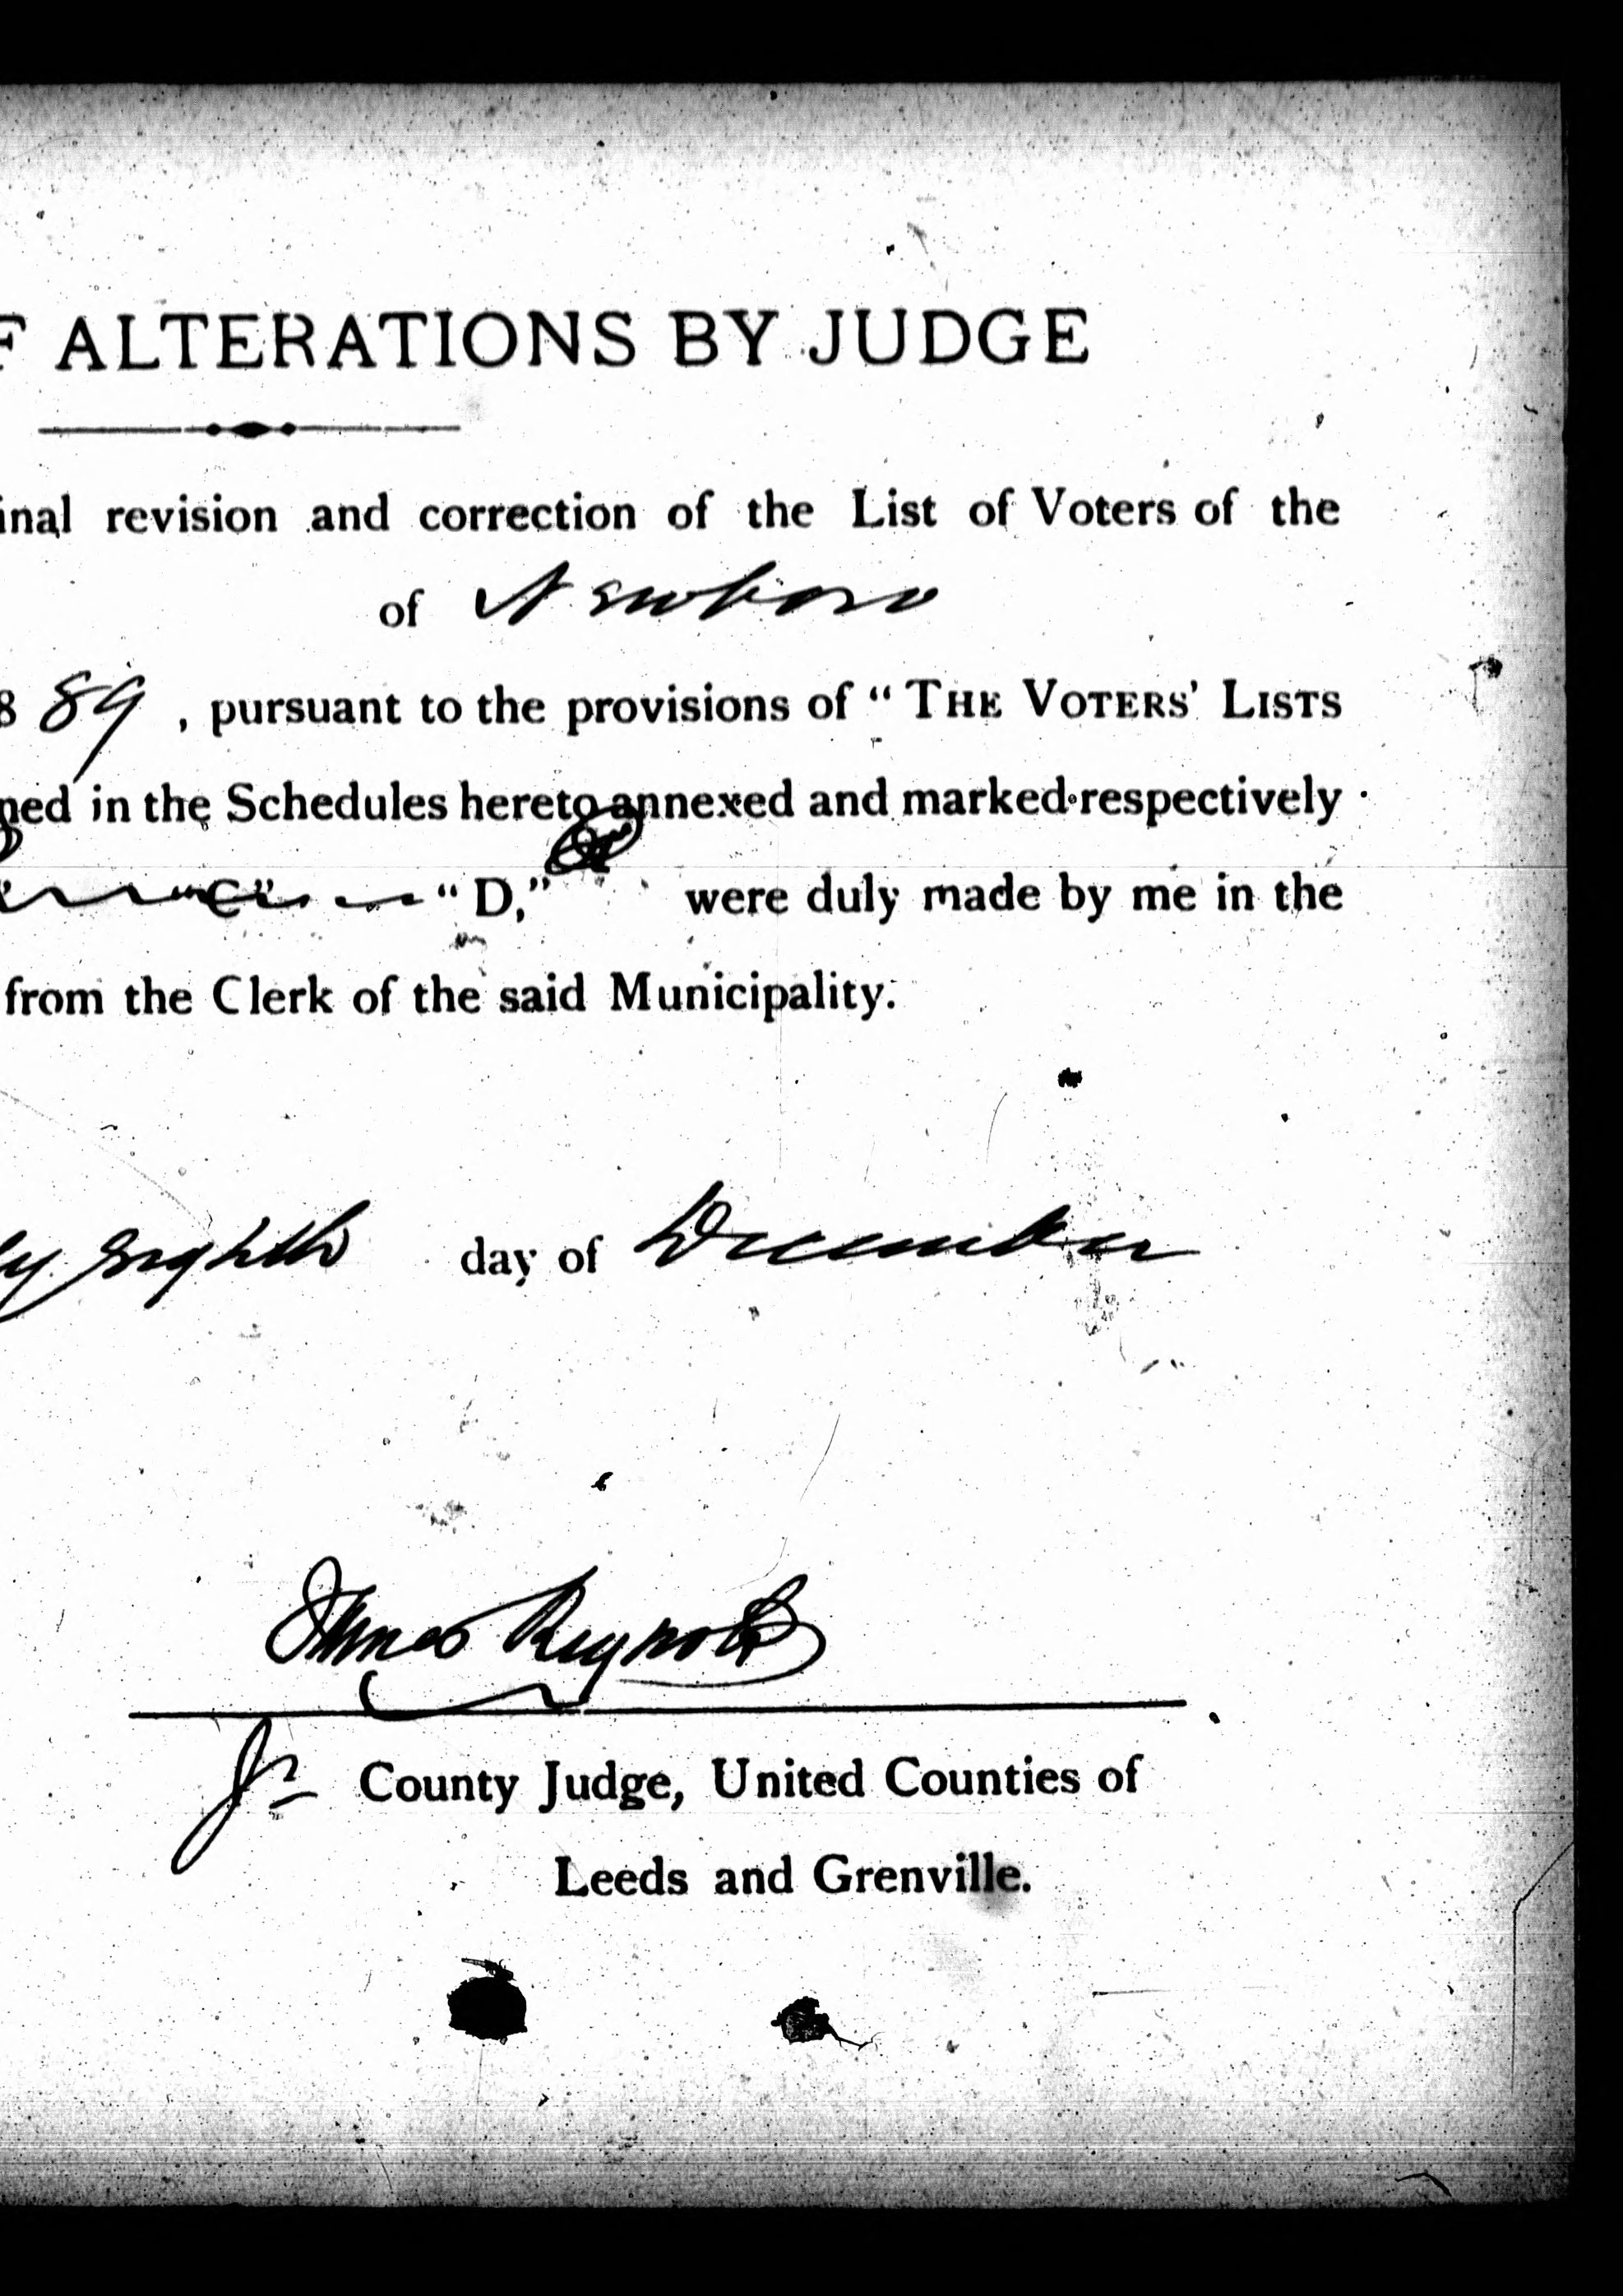 F ALTERATIONS BY JUDGE
inal revision and correction of the List of Voters of the
of Newboro
8 89, pursuant to the provisions of "THE VOTERS' LISTS
ned in the Schedules hereto annexed and marked respectively
"C" "D," were duly made by me in the
from the Clerk of the said Municipality.
y eighth day of December
James Reynolds
Jr County Judge, United Counties of
Leeds and Grenville.